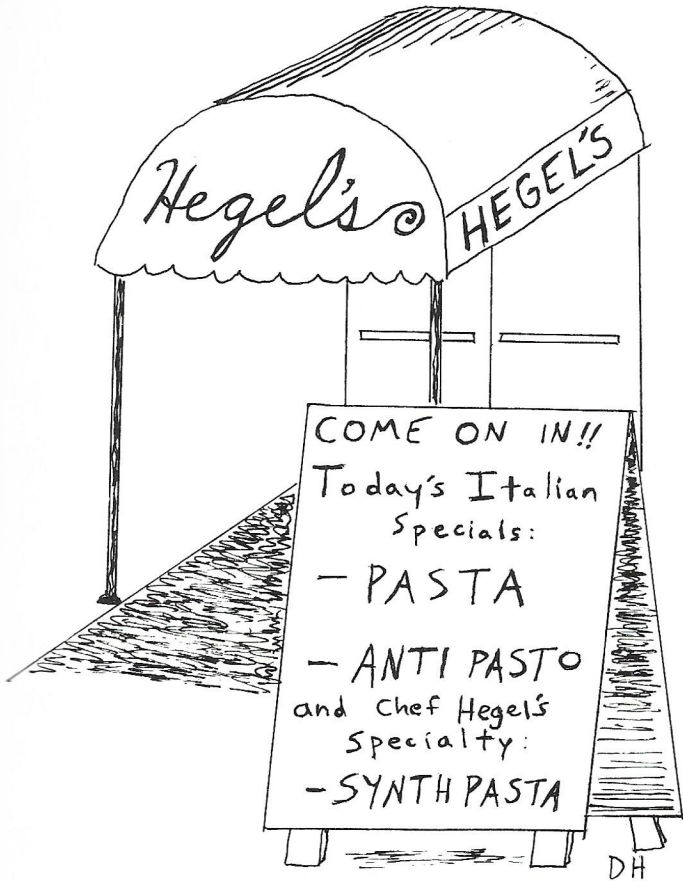 Hegel's
HEGEL'S
COME ON IN!!
Today's Italian
Specials:
- PASTA
- ANTI PASTO
and Chef Hegel's
Specialty:
- SYNTHPASTA
DH